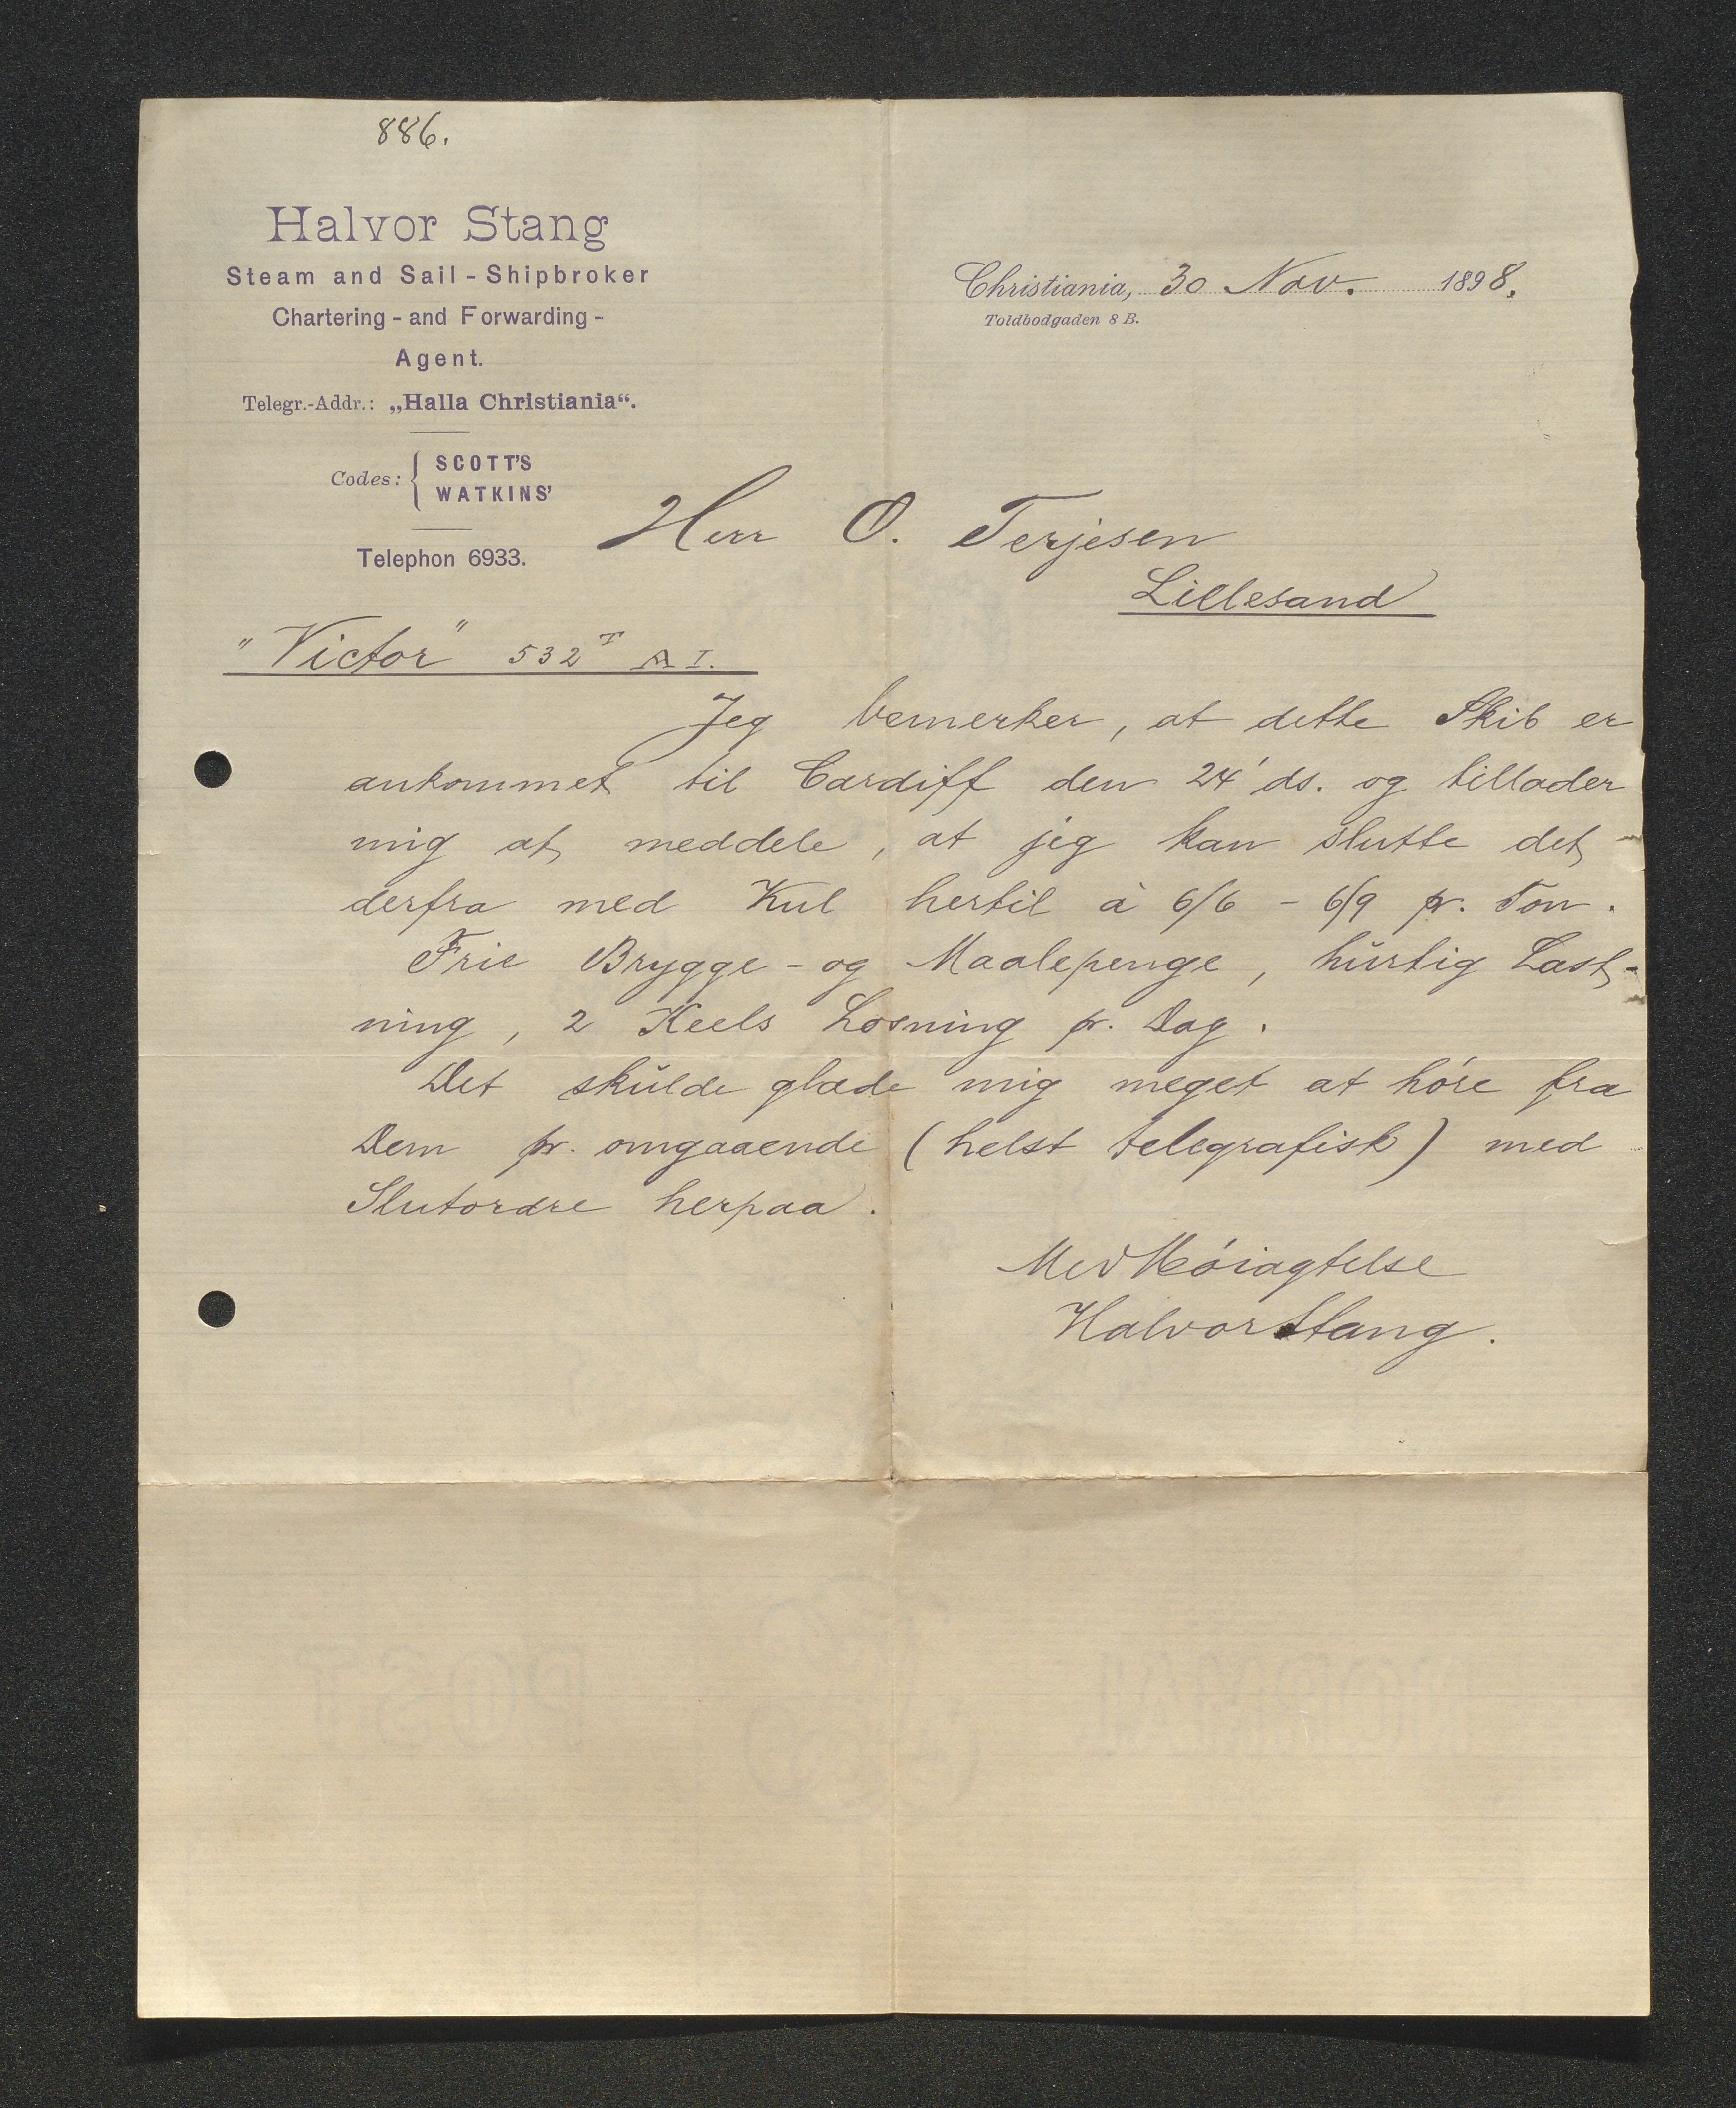 886.
Halvor Stang
Steam and Sail-Shipbroker
Chartering- and Forwarding-
Agent.
Telegr.-Addr.: „Halla Christiania“.
Codes: { SCOTT'S
WATKINS'
Telephon 6933.
Christiania, 30 Nov. 1898.
Toldbodgaden 8 B.
Herr O. Terjesen
Lillesand
"Victor" 532 T A I.
Jeg bemerker, at dette Skib er
ankommet til Cardiff den 24' ds. og tillader
mig at meddele, at jeg kan slutte det
derfra med Kul hertil à 6/6 - 6/9 pr. Ton.
Frie Brygge- og Maalepenge, hurtig Last-
ning, 2 Keels Losning pr. Dag.
Det skulde glæde mig meget at høre fra
Dem pr. omgaaende (helst telegrafisk) med
Slutordre herpaa.
Med Høiagtelse
Halvor Stang.